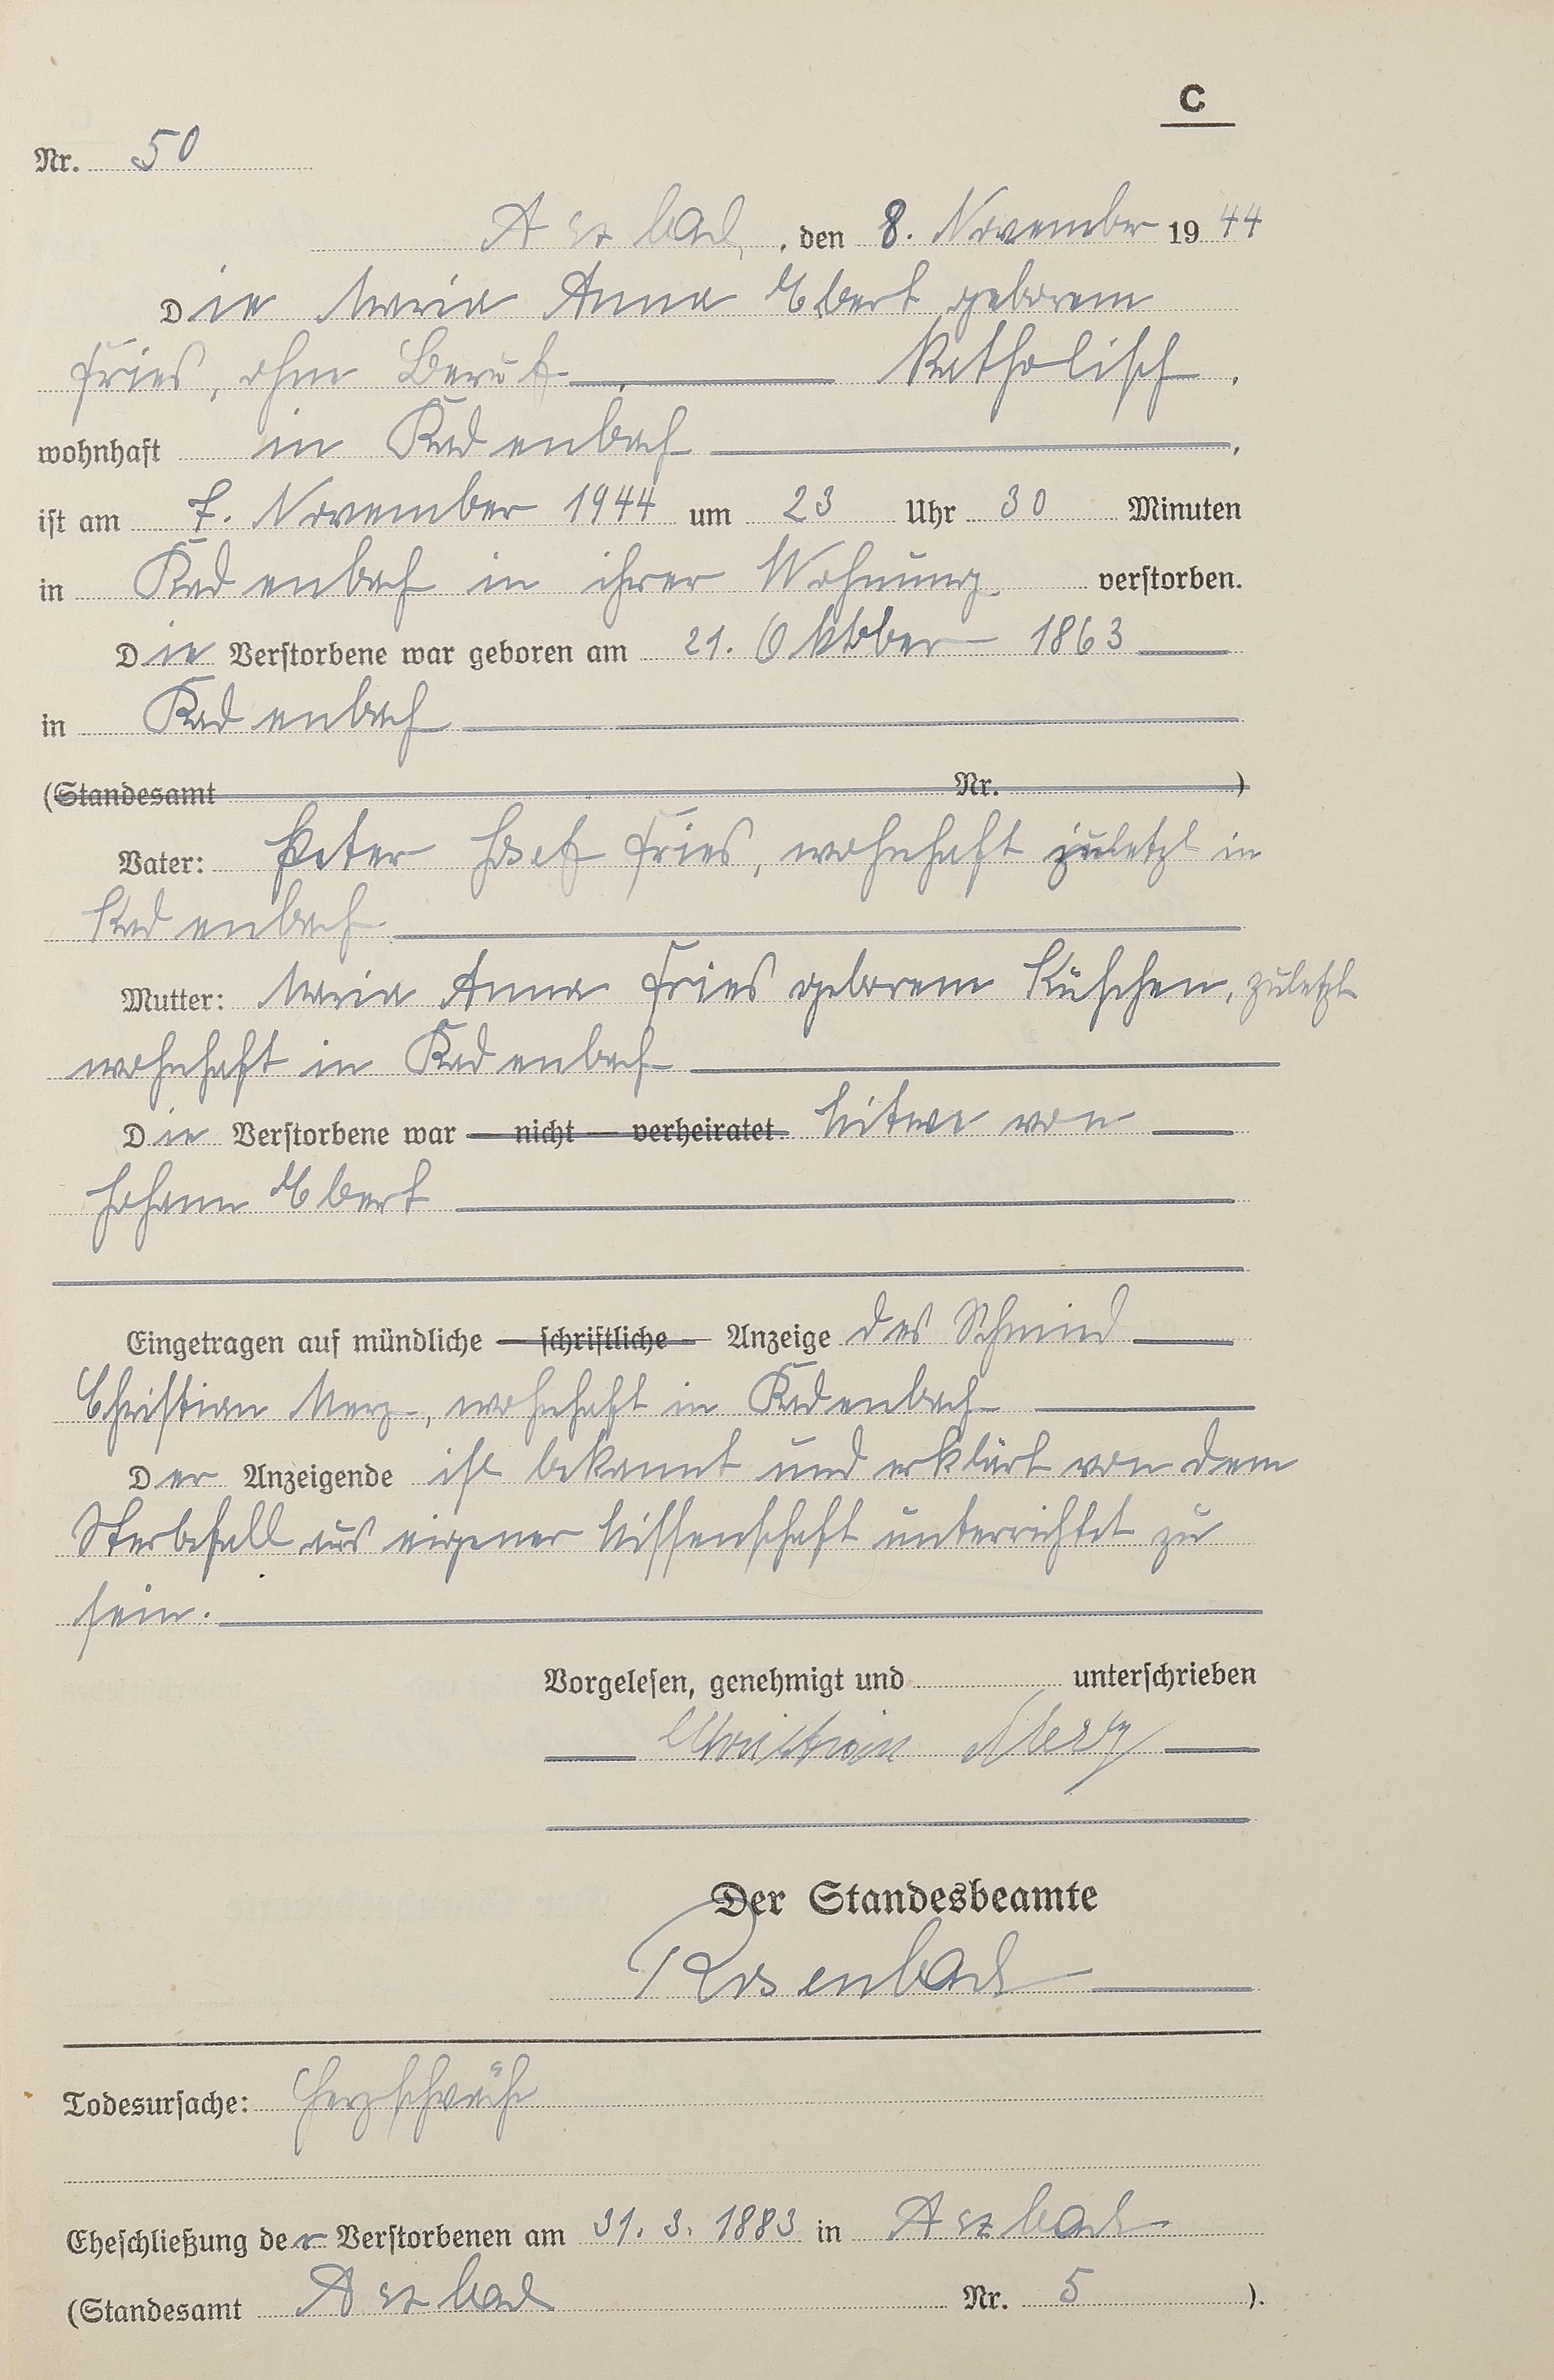 C
Nr. 50
Arzbach, den 8. November 1944
Die Maria Anna Ebert geborene
Fries, ohne Beruf katholisch,
wohnhaft in Kadenbach,
ist am 7. November 1944 um 23 Uhr 30 Minuten
in Kadenbach in ihrer Wohnung verstorben.
Die Verstorbene war geboren am 21. Oktober 1863
in Kadenbach
(Standesamt Nr. )
Vater: Peter Josef Fries, wohnhaft zuletzt in
Kadenbach
Mutter: Maria Anna Fries geborene Küschen, zuletzt
wohnhaft in Kadenbach
Die Verstorbene war — nicht — verheiratet Witwe von
Johann Ebert
Eingetragen auf mündliche — schriftliche — Anzeige des Schmied
Christian Merz, wohnhaft in Kadenbach
Der Anzeigende ist bekannt und erklärt von dem
Sterbefall aus eigener Wissenschaft unterrichtet zu
sein.
Vorgelesen, genehmigt und unterschrieben
Christian Merz
Der Standesbeamte
Rosenbach
Todesursache: Herzschwäche
Eheschließung der Verstorbenen am 31. 3. 1883 in Arzbach
(Standesamt Arzbach Nr. 5 ).